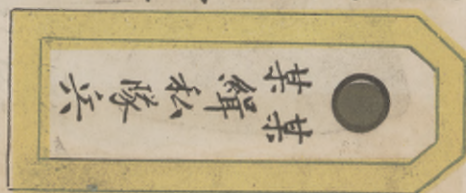 某某緝私隊兵